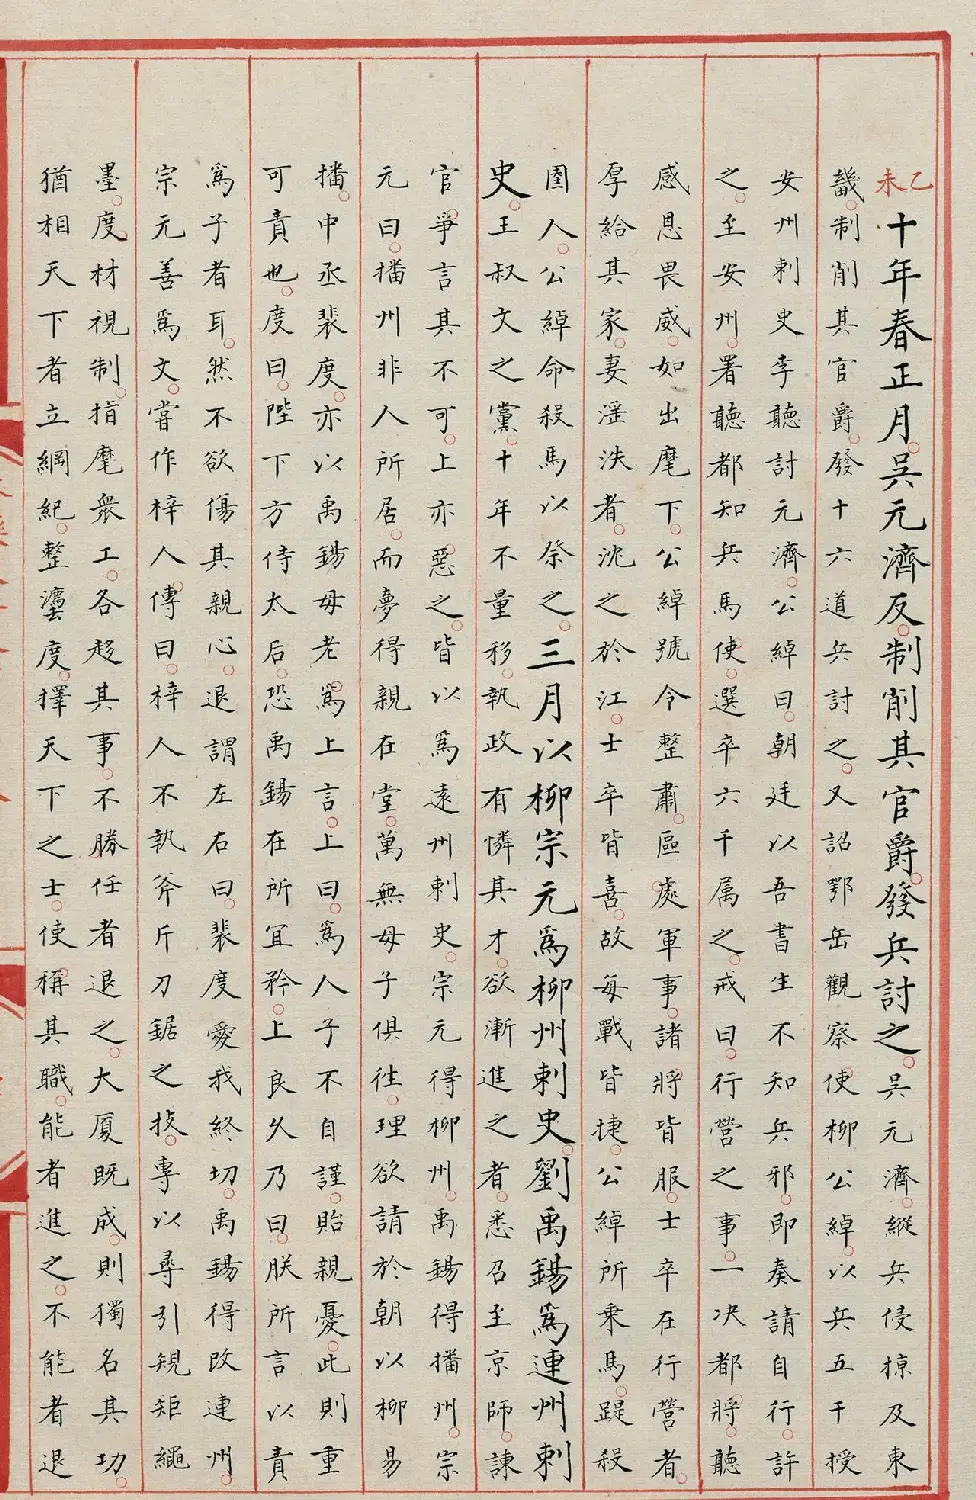 乙未十年春正月。吳元濟反。制削其官爵。發兵討之。吳元濟。縱兵侵掠及東
畿。制削其官爵。發十六道兵討之。又詔鄂岳觀察使柳公綽。以兵五千授
安州刺史李聽討元濟。公綽曰。朝廷以吾書生不知兵邪。即奏請自行。許
之。至安州。署聽都知兵馬使。選卒六千属之。戒曰。行營之事。一决都將。聽
感恩畏威。如出麾下。公綽號令整肅。區處軍事。諸將皆服。士卒在行營者。
厚給其家。妻淫泆者。沈之於江。士卒皆喜。故每戰皆捷。公綽所乘馬。踶殺
圉人。公綽命殺馬以祭之。三月以柳宗元爲柳州刺史。劉禹錫爲連州刺
史。王叔文之黨。十年不量移。執政有憐其才。欲漸進之者。悉召至京師。諫
官。爭言其不可。上亦惡之。皆以爲遠州刺史。宗元得柳州。禹錫得播州。宗
元曰。播州非人所居。而夢得親在堂。萬無母子俱往。理欲請於朝以柳易
播。中丞裴度。亦以禹錫母老。爲上言。上曰。爲人子不自謹。貽親憂。此則重
可責也。度曰。陛下方侍太后。恐禹錫在所宜矜。上良久乃曰。朕所言以責
爲子者耳。然不欲傷其親心。退謂左右曰。裴度愛我終切。禹錫得改連州。
宗元善爲文。嘗作梓人傳曰。梓人不執斧斤刀鋸之技。專以尋引規矩繩
墨。度材視制。指麾衆工。各趍其事。不勝任者退之。大厦既成。則獨名其功。
猶相天下者立綱紀。整灋度。擇天下之士。使稱其職。能者進之。不能者退